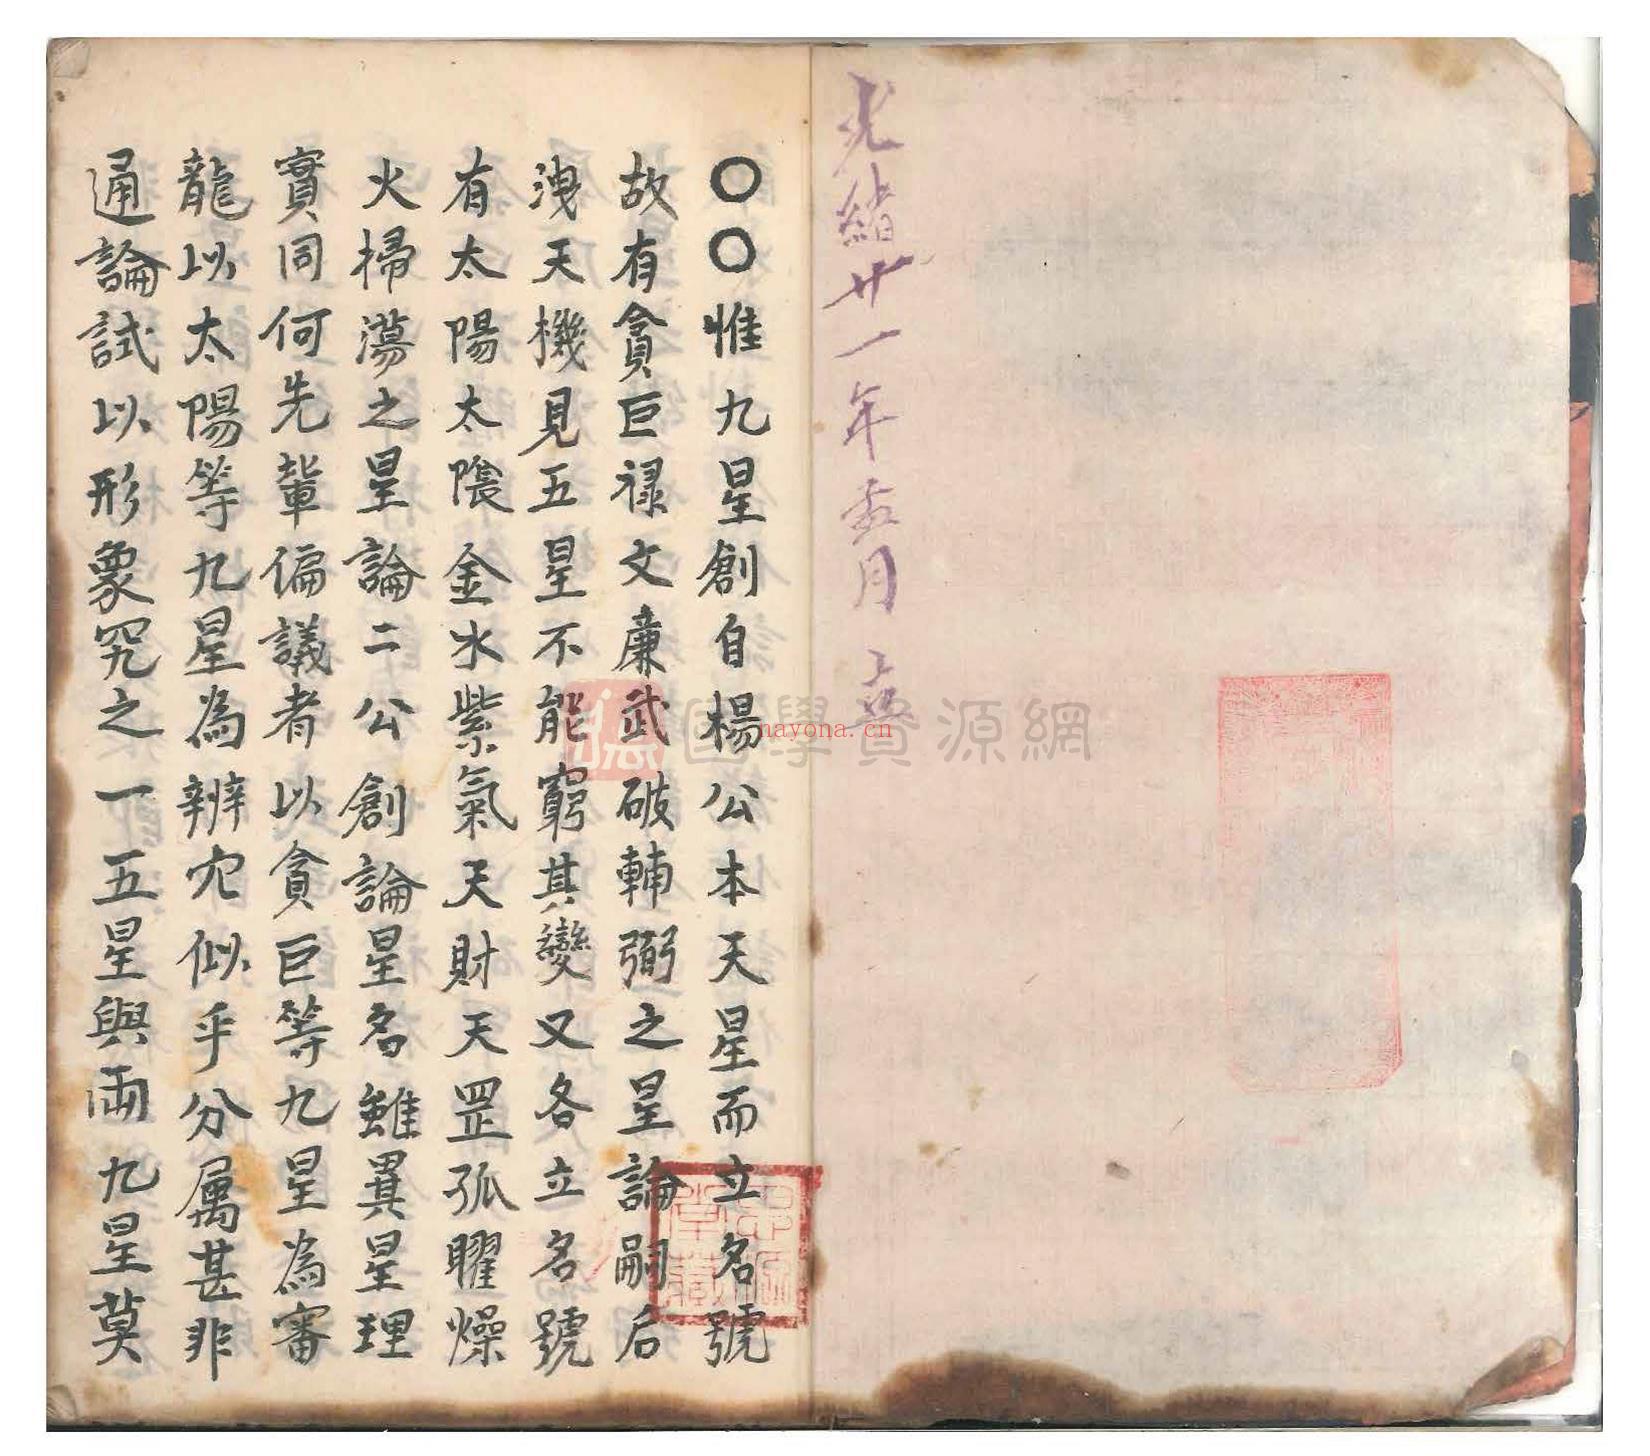 光緒廿一年孟月立
〇〇惟九星創自楊公本天星而立名號
故有貪巨祿文廉武破輔弼之星論嗣后
洩天機見五星不能窮其變又各立名號
有太陽太陰金水紫氣天財天罡孤曜燥
火掃蕩之星論二公創論星名雖異星理
實同何先輩偏議者以貪巨等九星為審
龍以太陽等九星為辨穴似乎分属甚非
通論試以形象究之一五星與兩九星莫
國學資源網
nayona.cn